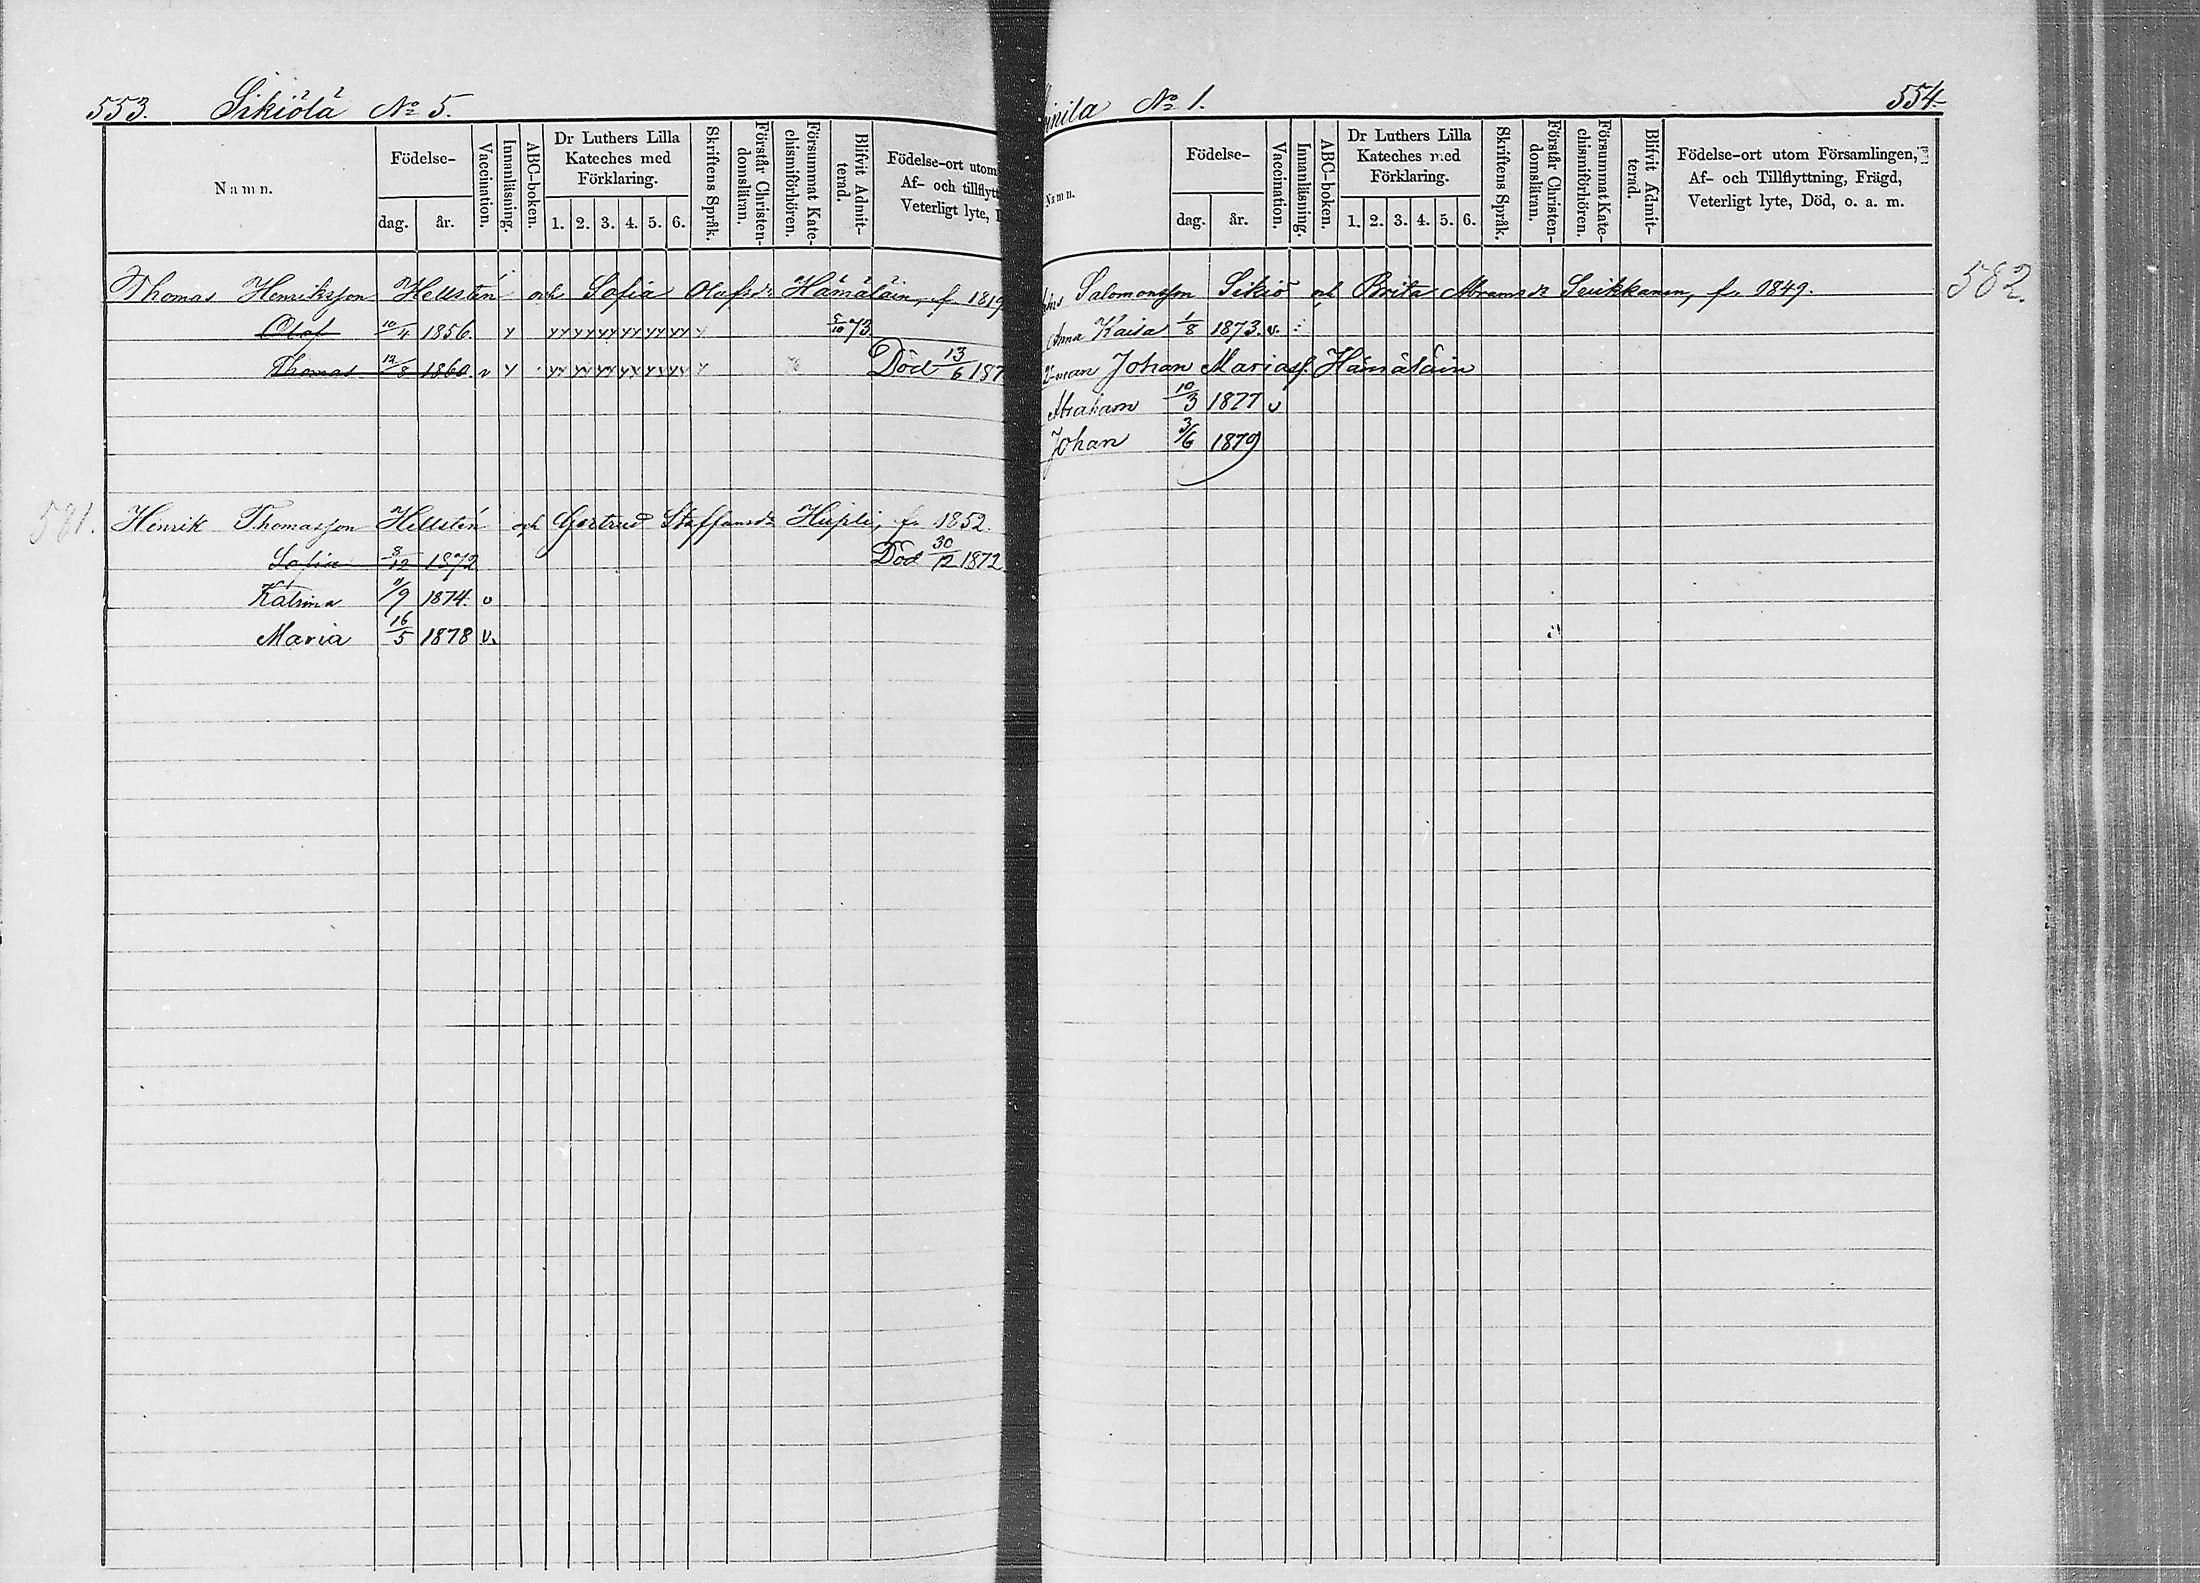 553. Sikiölä No 5.
Namn.
Födelse-
dag. år.
Vaccination.
Innanläsning.
ABC-boken.
Dr Luthers Lilla
Kateches med
Förklaring.
1. 2. 3. 4. 5. 6.
Skriftens Språk.
Förstår Christen-
domsläran.
Försummat Kate-
chismiförhören.
Blifvit Admit-
terad.
Födelse-ort utom
Af- och tillflytt
Veterligt lyte,
Thomas Henriksson Hellstén och Sofia Olofsdr Hämäläin, f. 1819
Olof 10/4 1856. 5/10 73
Thomas 12/8 1860. v Död 13/6 187
581. Henrik Thomasson Hellstén och Gertrud Staffansdr Hupli, f. 1852.
Sofia 8/12 1872 Död 30/12 1872.
Katrina 11/9 1874. v
Maria 16/5 1878 v.
nila No 1. 554.
Namn.
Födelse-
dag. år.
Vaccination.
Innanläsning.
ABC-boken.
Dr Luthers Lilla
Kateches med
Förklaring.
1. 2. 3. 4. 5. 6.
Skriftens Språk.
Förstår Christen-
domsläran.
Försummat Kate-
chismiförhören.
Blifvit Admit-
terad.
Födelse-ort utom Församlingen,
Af- och Tillflyttning, Frägd,
Veterligt lyte, Död, o. a. m.
Salomonsson Sikiö och Brita Abramsdr Seukkanen, f. 1849. 582.
Anna Kaisa 1/8 1873. v.
2-man Johan Mariass. Hämäläin
Abraham 10/3 1877 v
Johan 3/6 1879